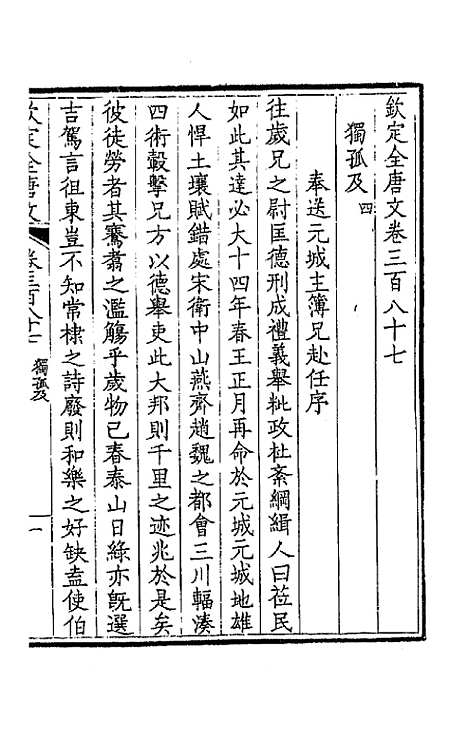 欽定全唐文卷三百八十七
獨孤及四
奉送元城主簿兄赴任序
往歲兄之尉匡德刑成禮義舉秕政杜紊綱緝人曰莅民
如此其達必大十四年春王正月再命於元城元城地雄
人悍土壤賦錯處宋衛中山燕齊趙魏之都會三川輻湊
四術轂擊兄方以德舉吏此大邦則千里之迹兆於是矣
彼徒勞者其騫翥之濫觴乎歲物已春泰山日綠亦旣選
吉駕言徂東豈不知常棣之詩廢則和樂之好缺盍使伯
欽定全唐文
卷三百八十七
獨孤及
一